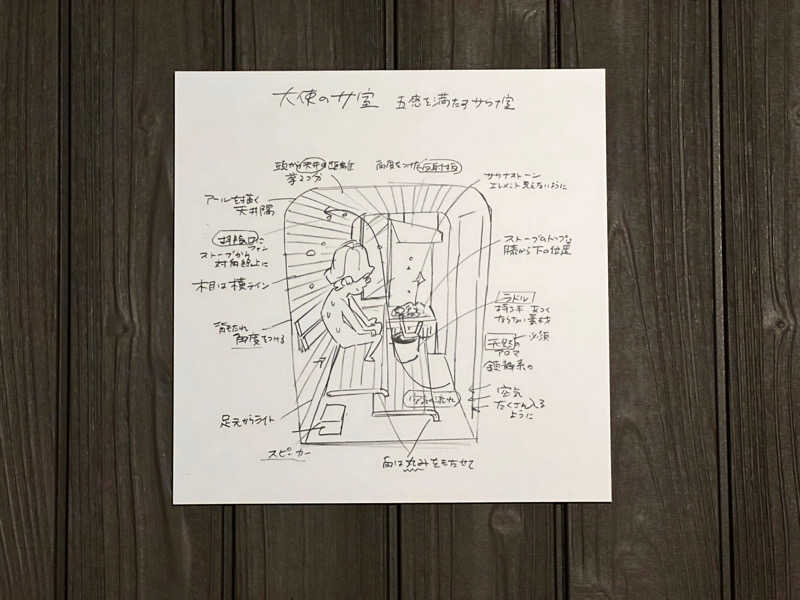 大使のサ室 五感を満たすサウナ室
頭から天井まで距離
拳2つ分
角度をつけた反射板
サウナストーン
エレメント見えないように
アールを描く
天井隅
排気口に
ファン
ストーブから
対角線上に
ストーブのトップは
膝から下の位置
木目は横ライン
ラドル
持つ手 あつく
ならない素材
背もたれ
角度をつける
天然の 必須
アロマ
鎮静系の
空気の流れ
空気
たくさん入る
ように
足元からライト
スピーカー
角は丸みをもたせて